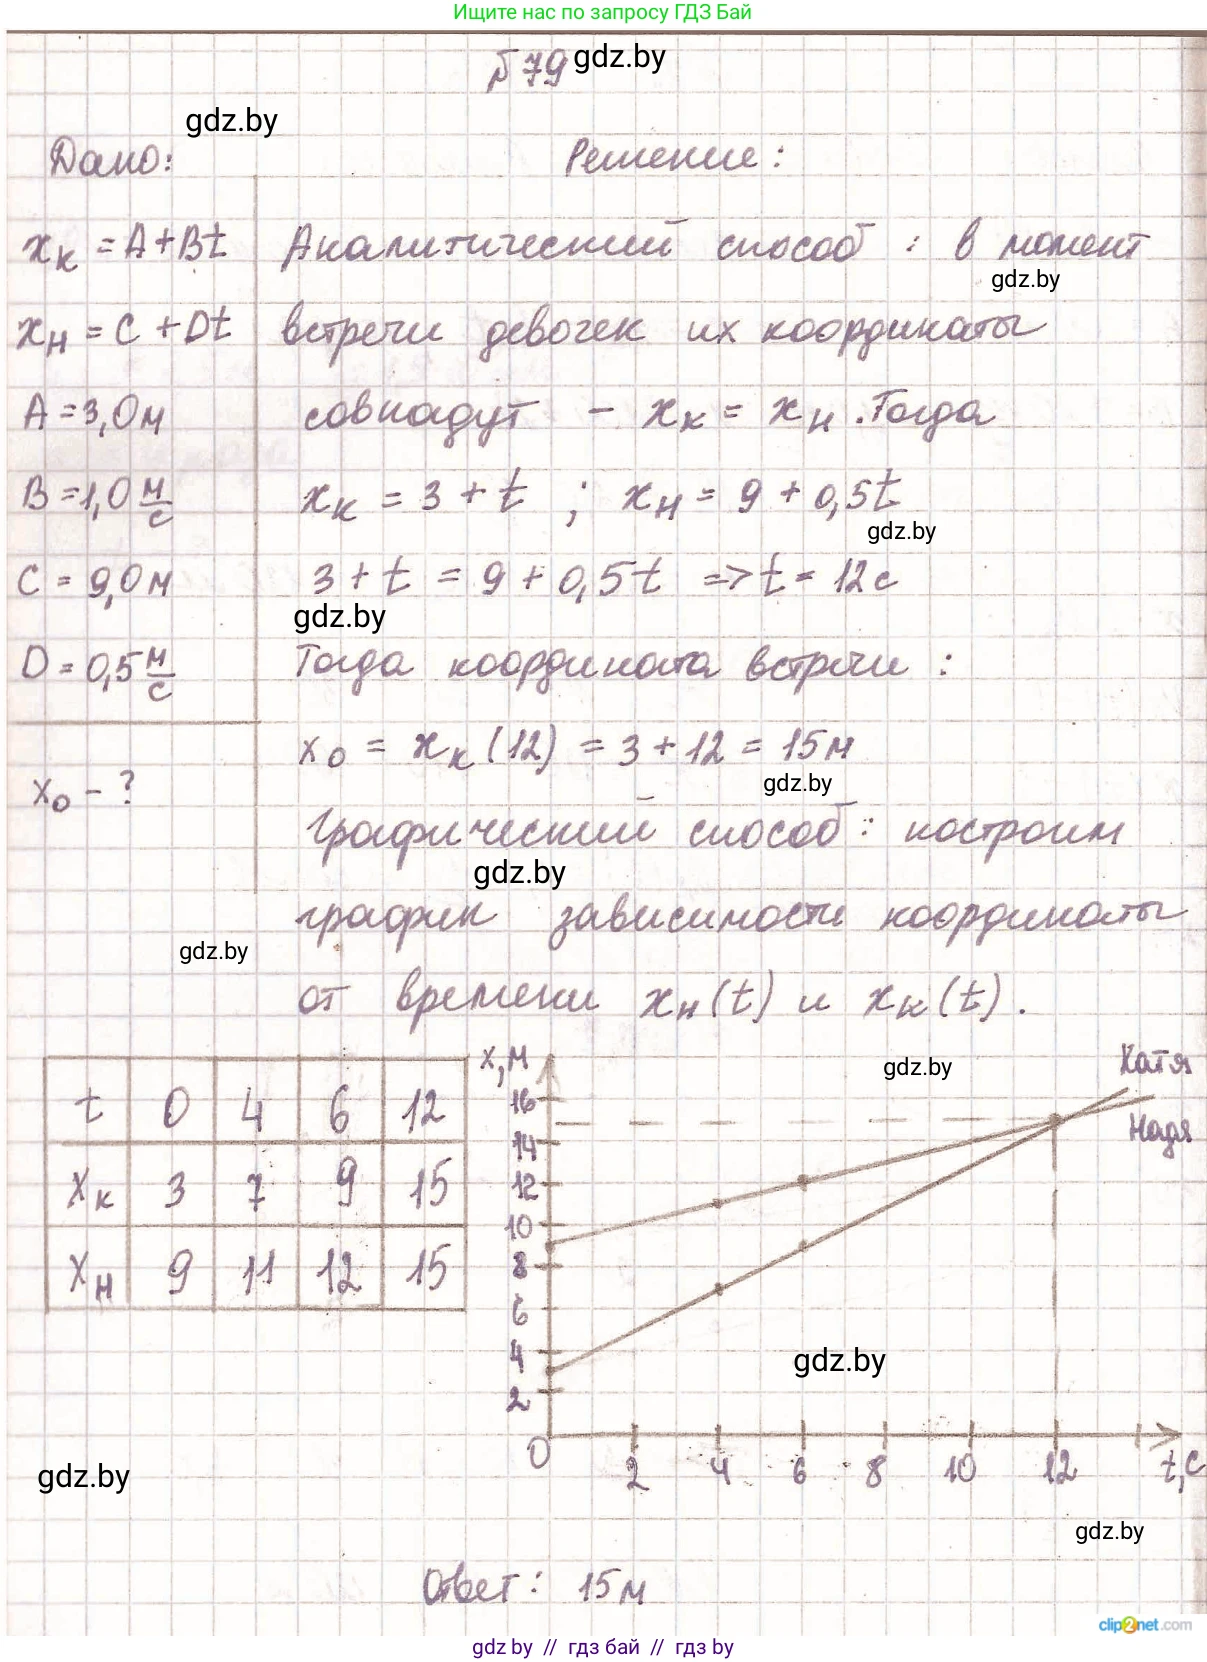 Ищите нас по запросу ГДЗ Бай
№79 gdz.by
gdz.by
Дано: Решение:
xк = A + Bt Аналитический способ : в момент
gdz.by
xн = C + Dt встречи девочек их координаты
A = 3,0 м совпадут – xк = xн . Тогда
B = 1,0 м/с xк = 3 + t ; xн = 9 + 0,5t
gdz.by
C = 9,0 м 3 + t = 9 + 0,5t => t = 12 с
gdz.by
D = 0,5 м/с Тогда координата встречи :
x₀ – ? x₀ = xк (12) = 3 + 12 = 15 м
gdz.by
Графический способ : построим
gdz.by
график зависимости координаты
gdz.by
от времени xн(t) и xк(t) .
gdz.by
t 0 4 6 12
xк 3 7 9 15
xн 9 11 12 15
x, м
16
14
12
10
8
6
4
2
0 2 4 6 8 10 12 t, с
Катя
Надя
gdz.by
gdz.by
gdz.by
Ответ : 15 м
clip2net.com
gdz by // гдз бай // гдз by